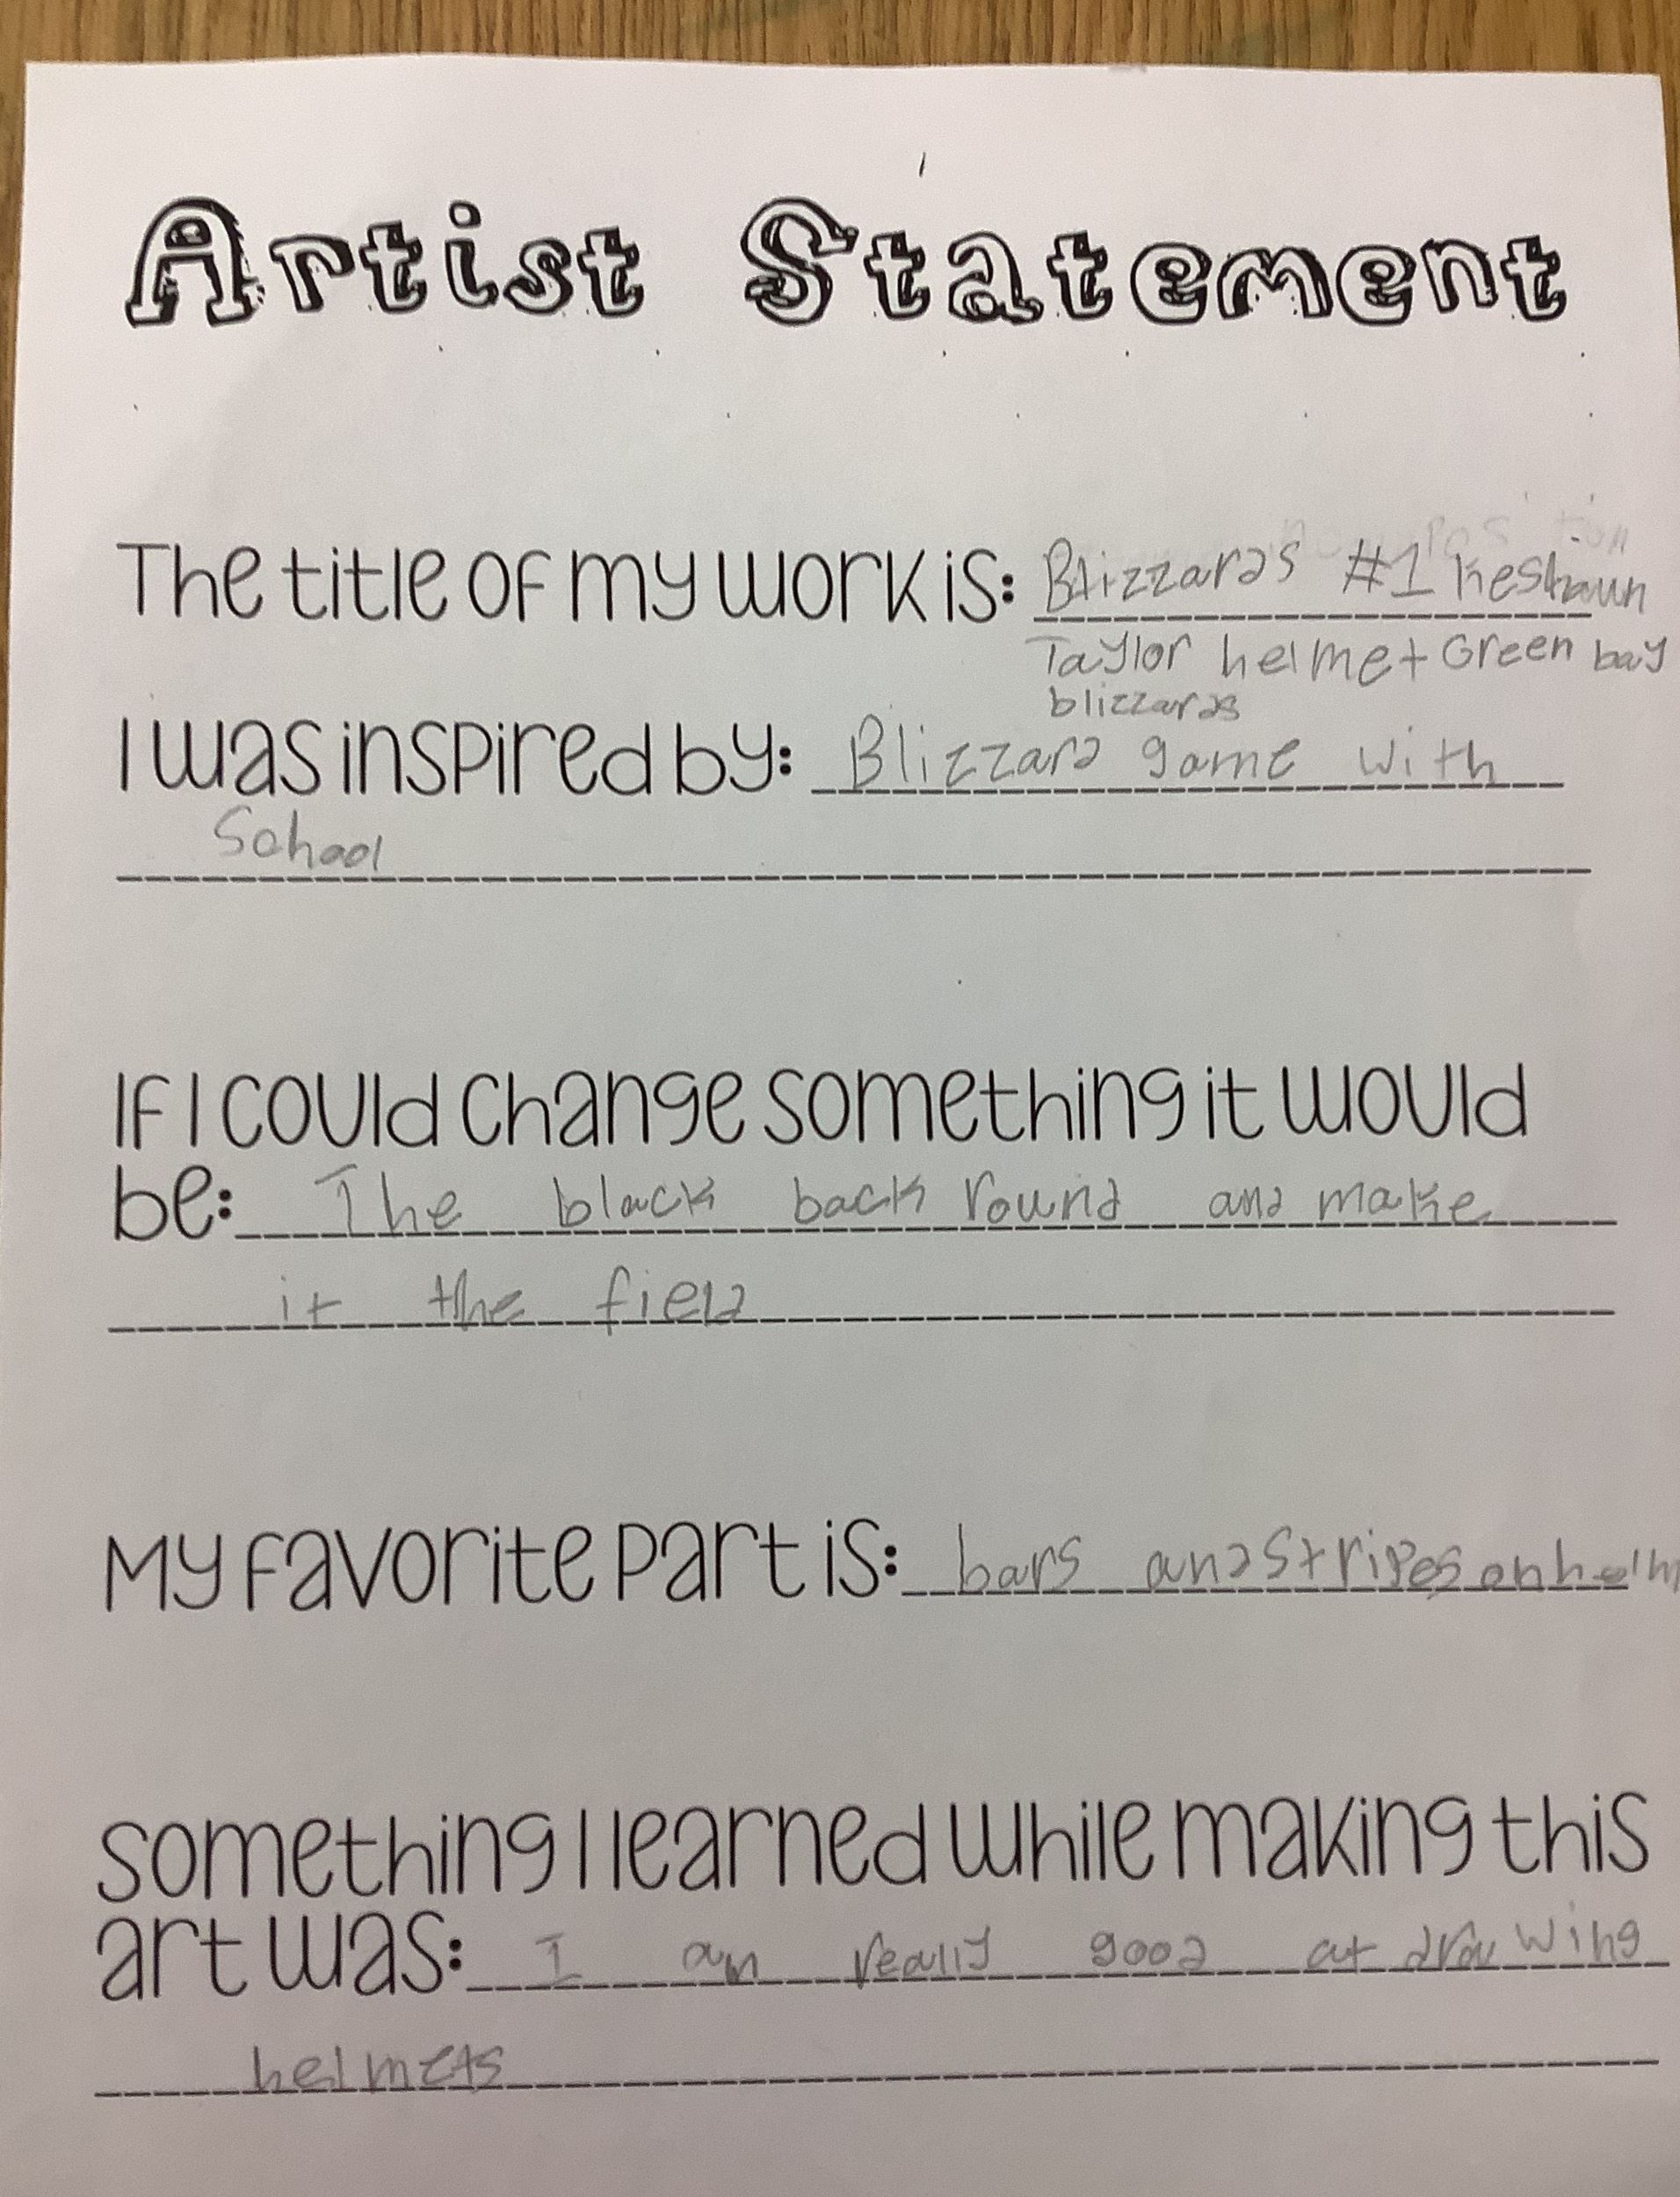 Artist Statement
The title of my work is: Blizzards #1 Keshawn
Taylor helmet Green bay
blizzards
I was inspired by: Blizzard game with
School
If I could change something it would
be: The black back round and make
it the field
My favorite part is: bars and stripes on helm
Something I learned while making this
art was: I am really good at drawing
helmets